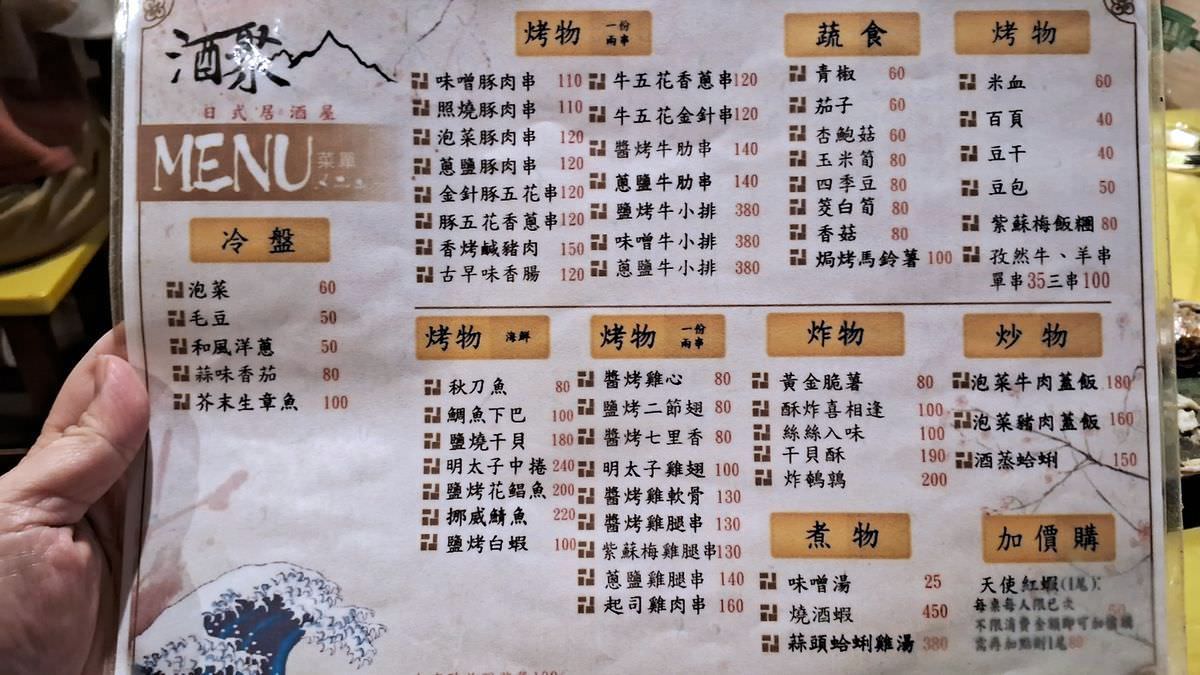 酒聚
日式居酒屋
MENU 菜單
冷盤
泡菜 60
毛豆 50
和風洋蔥 50
蒜味香茄 80
芥末生章魚 100
烤物 一份兩串
味噌豚肉串 110
照燒豚肉串 110
泡菜豚肉串 120
蔥鹽豚肉串 120
金針豚五花串 120
豚五花香蔥串 120
香烤鹹豬肉 150
古早味香腸 120
牛五花香蔥串 120
牛五花金針串 120
醬烤牛肋串 140
蔥鹽牛肋串 140
鹽烤牛小排 380
味噌牛小排 380
蔥鹽牛小排 380
蔬食
青椒 60
茄子 60
杏鮑菇 60
玉米筍 80
四季豆 80
筊白筍 80
香菇 80
焗烤馬鈴薯 100
烤物
米血 60
百頁 40
豆干 40
豆包 50
紫蘇梅飯糰 80
孜然牛、羊串
單串35三串100
烤物 海鮮
秋刀魚 80
鯛魚下巴 100
鹽燒干貝 180
明太子中捲 240
鹽烤花鯧魚 200
挪威鯖魚 220
鹽烤白蝦 100
烤物 一份兩串
醬烤雞心 80
鹽烤二節翅 80
醬烤七里香 80
明太子雞翅 100
醬烤雞軟骨 130
醬烤雞腿串 130
紫蘇梅雞腿串 130
蔥鹽雞腿串 140
起司雞肉串 160
炸物
黃金脆薯 80
酥炸喜相逢 100
絲絲入味 100
干貝酥 190
炸鵪鶉 200
炒物
泡菜牛肉蓋飯 180
泡菜豬肉蓋飯 160
酒蒸蛤蜊 150
煮物
味噌湯 25
燒酒蝦 450
蒜頭蛤蜊雞湯 380
加價購
天使紅蝦(1尾):
每桌每人限乙次 50
不限消費金額即可加價購
需再加點則1尾80